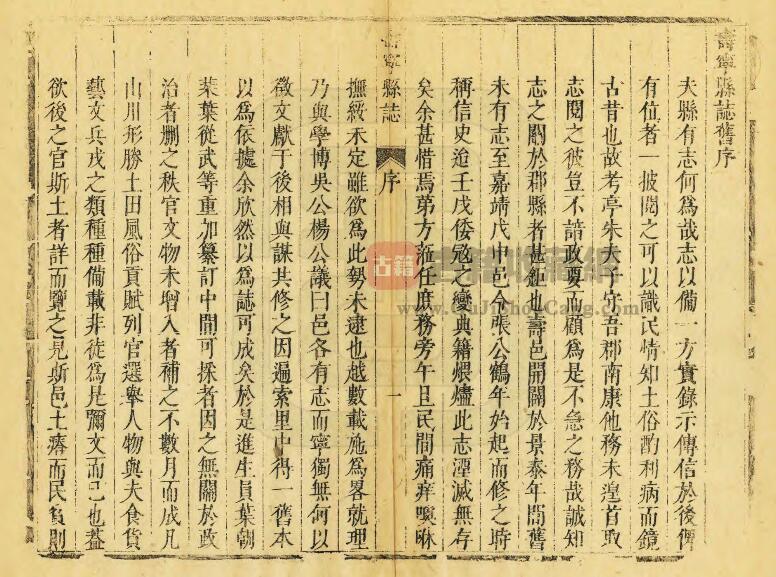 壽寧縣誌舊序
夫縣有志何爲哉志以備一方實錄示傳信於後俾
有位者一披閱之可以識民情知土俗酌利病而鏡
古昔也故考亭朱夫子守吾郡南康他務未湟首取
志閱之彼豈不諳政要而顧爲是不急之務哉誠知
志之關於郡縣者甚鉅也壽邑開闢於景泰年間舊
未有志至嘉靖戊申邑令張公鶴年始起而修之時
稱信史迨壬戌倭寇之變典籍煨燼此志湮滅無存
矣余甚惜焉第方蒞任庶務旁午且民間痛痒噢咻
壽寧縣誌 序 一
撫綏未定雖欲爲此勢未逮也越數載施爲畧就理
乃與學博吳公楊公議曰邑各有志而寧獨無何以
徵文獻于後相與謀共修之因遍索里中得一舊本
以爲依據余欣然以爲誌可成矣於是進生員葉朝
葉葉從武等重加纂訂中間可採者因之無關於政
治者刪之秩官文物未增入者補之不數月而成凡
山川形勝土田風俗貢賦列官選舉人物與夫食貨
藝文兵戎之類種種備載非徒爲是彌文而已也蓋
欲後之官斯土者詳而覽之見斯邑土瘠而民貧則
古籍
www.GuJiShouCang.com